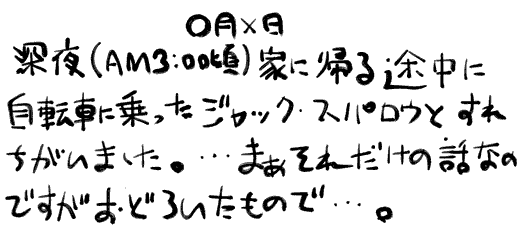 〇月×日
深夜(AM3:00頃)家に帰る途中に
自転車に乗ったジャック・スパロウとすれ
ちがいました。…まぁそれだけの話なの
ですがおどろいたもので…。